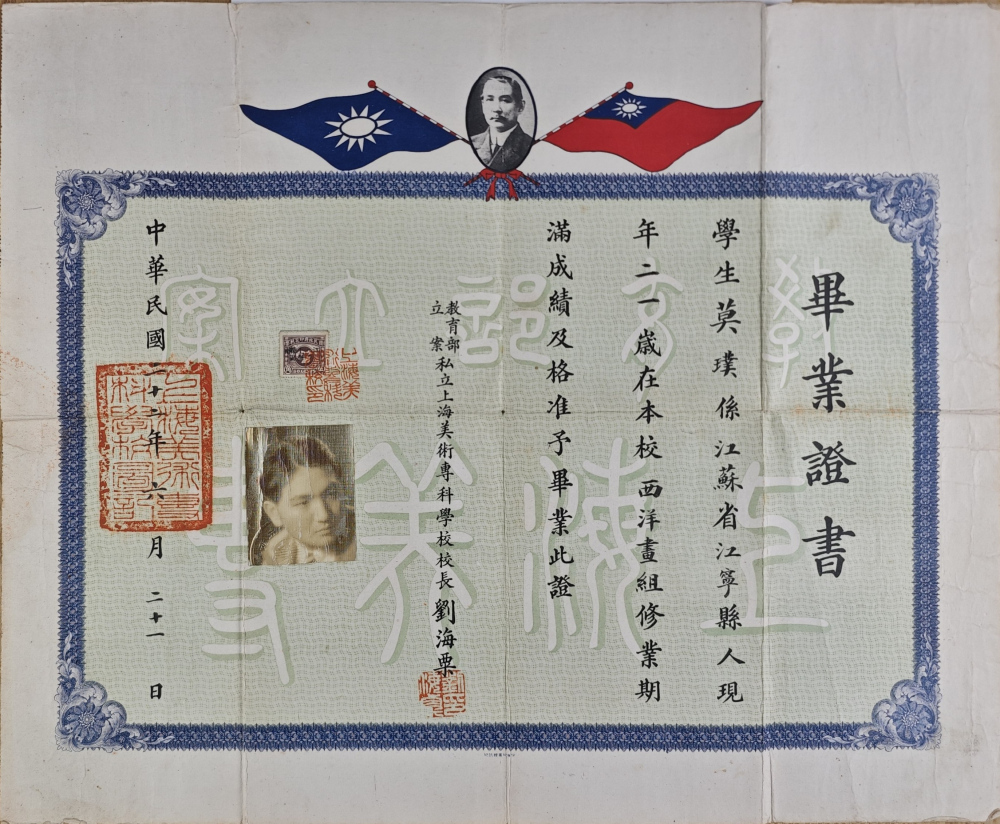 畢業證書
學生莫璞係江蘇省江寧縣人現
年二一歲在本校西洋畫組修業期
滿成績及格准予畢業此證
教育部立案私立上海美術專科學校校長劉海粟
中華民國二十二年六月二十一日
教育部立案
上海美專